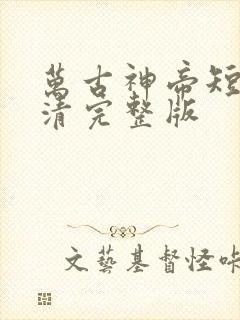 萬古神帝短
清完整版
文藝基督怪咔